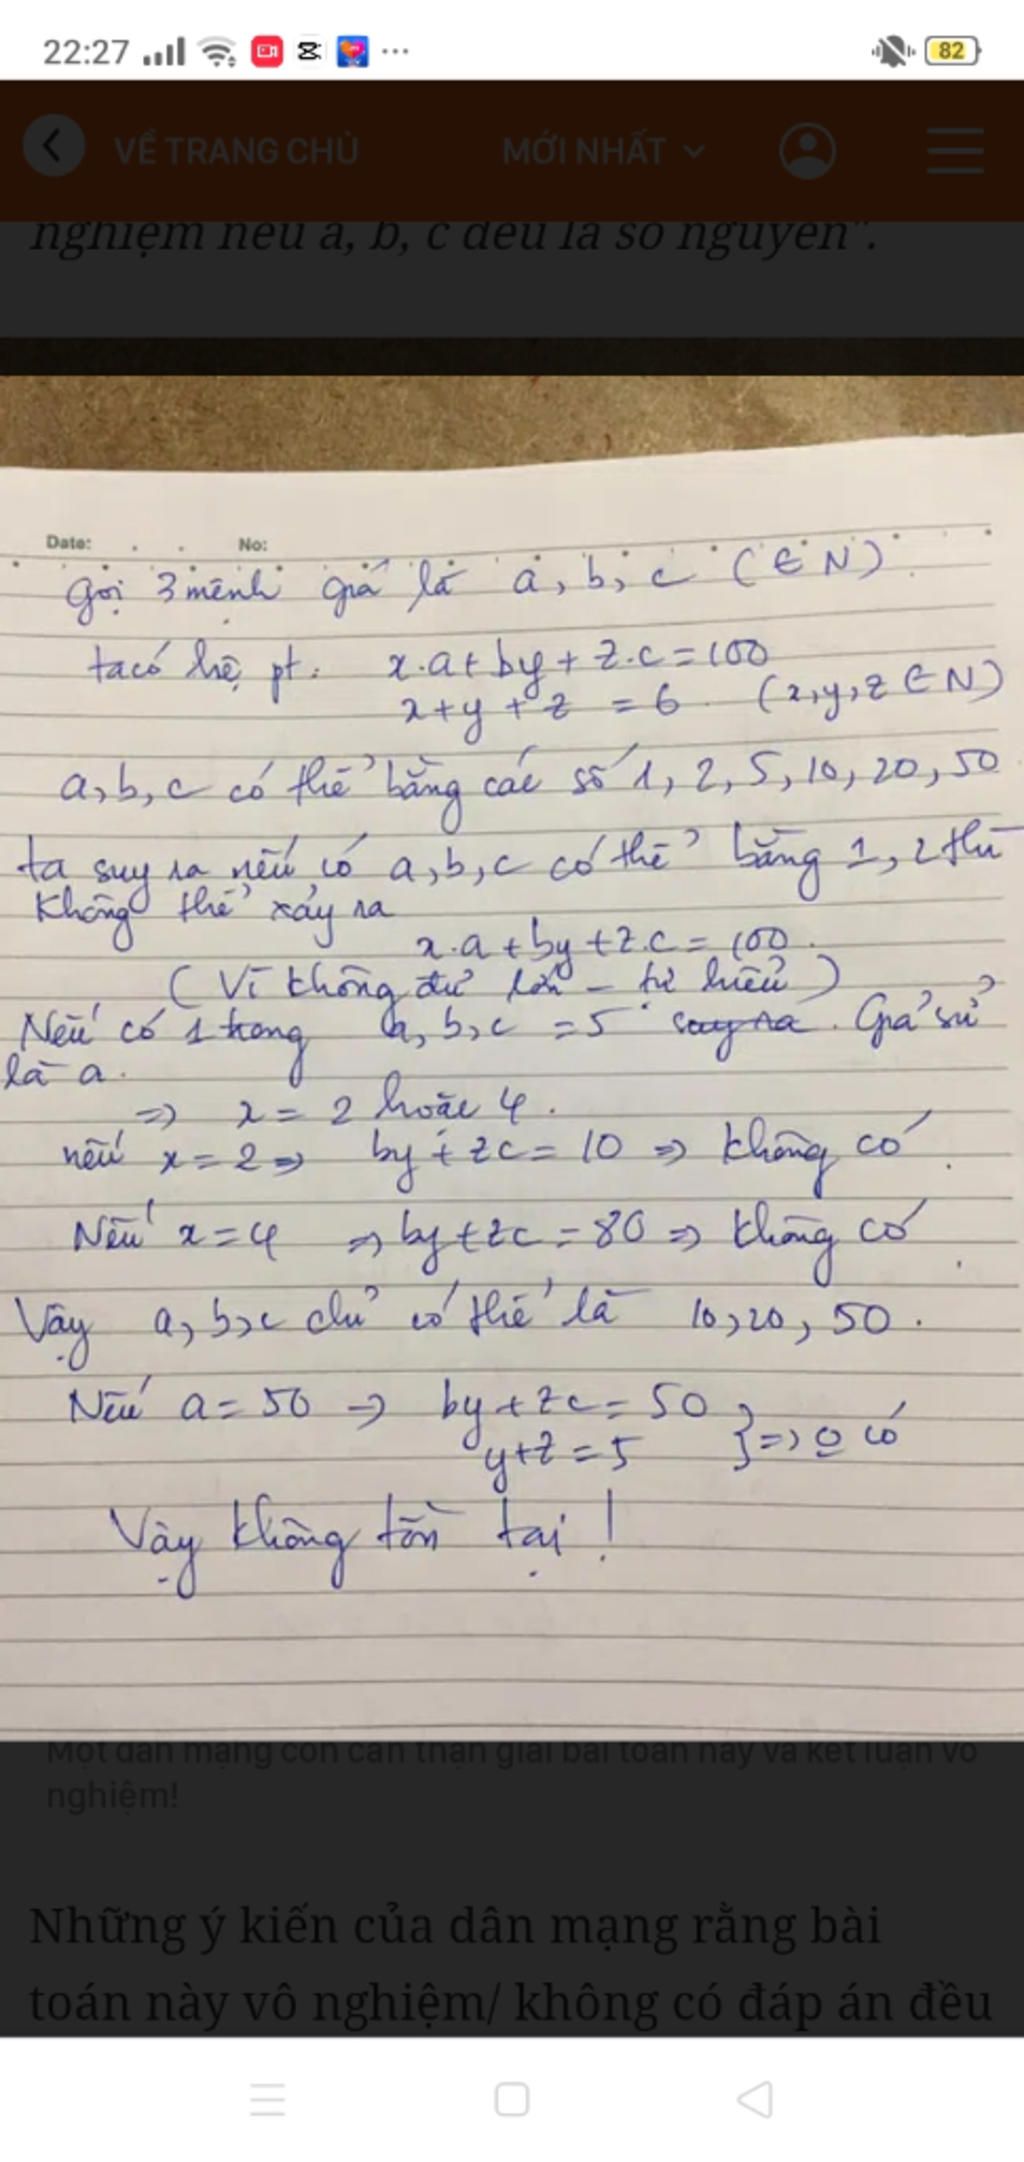 22:27
82
VỀ TRANG CHỦ MỚI NHẤT
nghiệm nếu a, b, c đều là số nguyên".
Date: No:
gọi 3 mệnh giá là a, b, c (∈ N)
ta có hệ pt: x.a + by + z.c = 100
x + y + z = 6 (x,y,z ∈ N)
a, b, c có thể bằng các số 1, 2, 5, 10, 20, 50
ta suy ra nếu có a, b, c có thể bằng 1, 2 thì
không thể xảy ra
x.a + by + z.c = 100.
(Vì không đủ lớn - tự hiểu)
Nếu có 1 trong a, b, c = 5 suy ra. Giả sử
là a.
=> x = 2 hoặc 4.
nếu x = 2 => by + zc = 10 => không có.
Nếu x = 4 => by + zc = 80 => không có.
Vậy a, b, c chỉ có thể là 10, 20, 50.
Nếu a = 50 -> by + zc = 50
y + z = 5 } => o có
Vậy không tồn tại!
Một dân mạng còn cẩn thận giải bài toán này và kết luận vô
nghiệm!
Những ý kiến của dân mạng rằng bài
toán này vô nghiệm/ không có đáp án đều